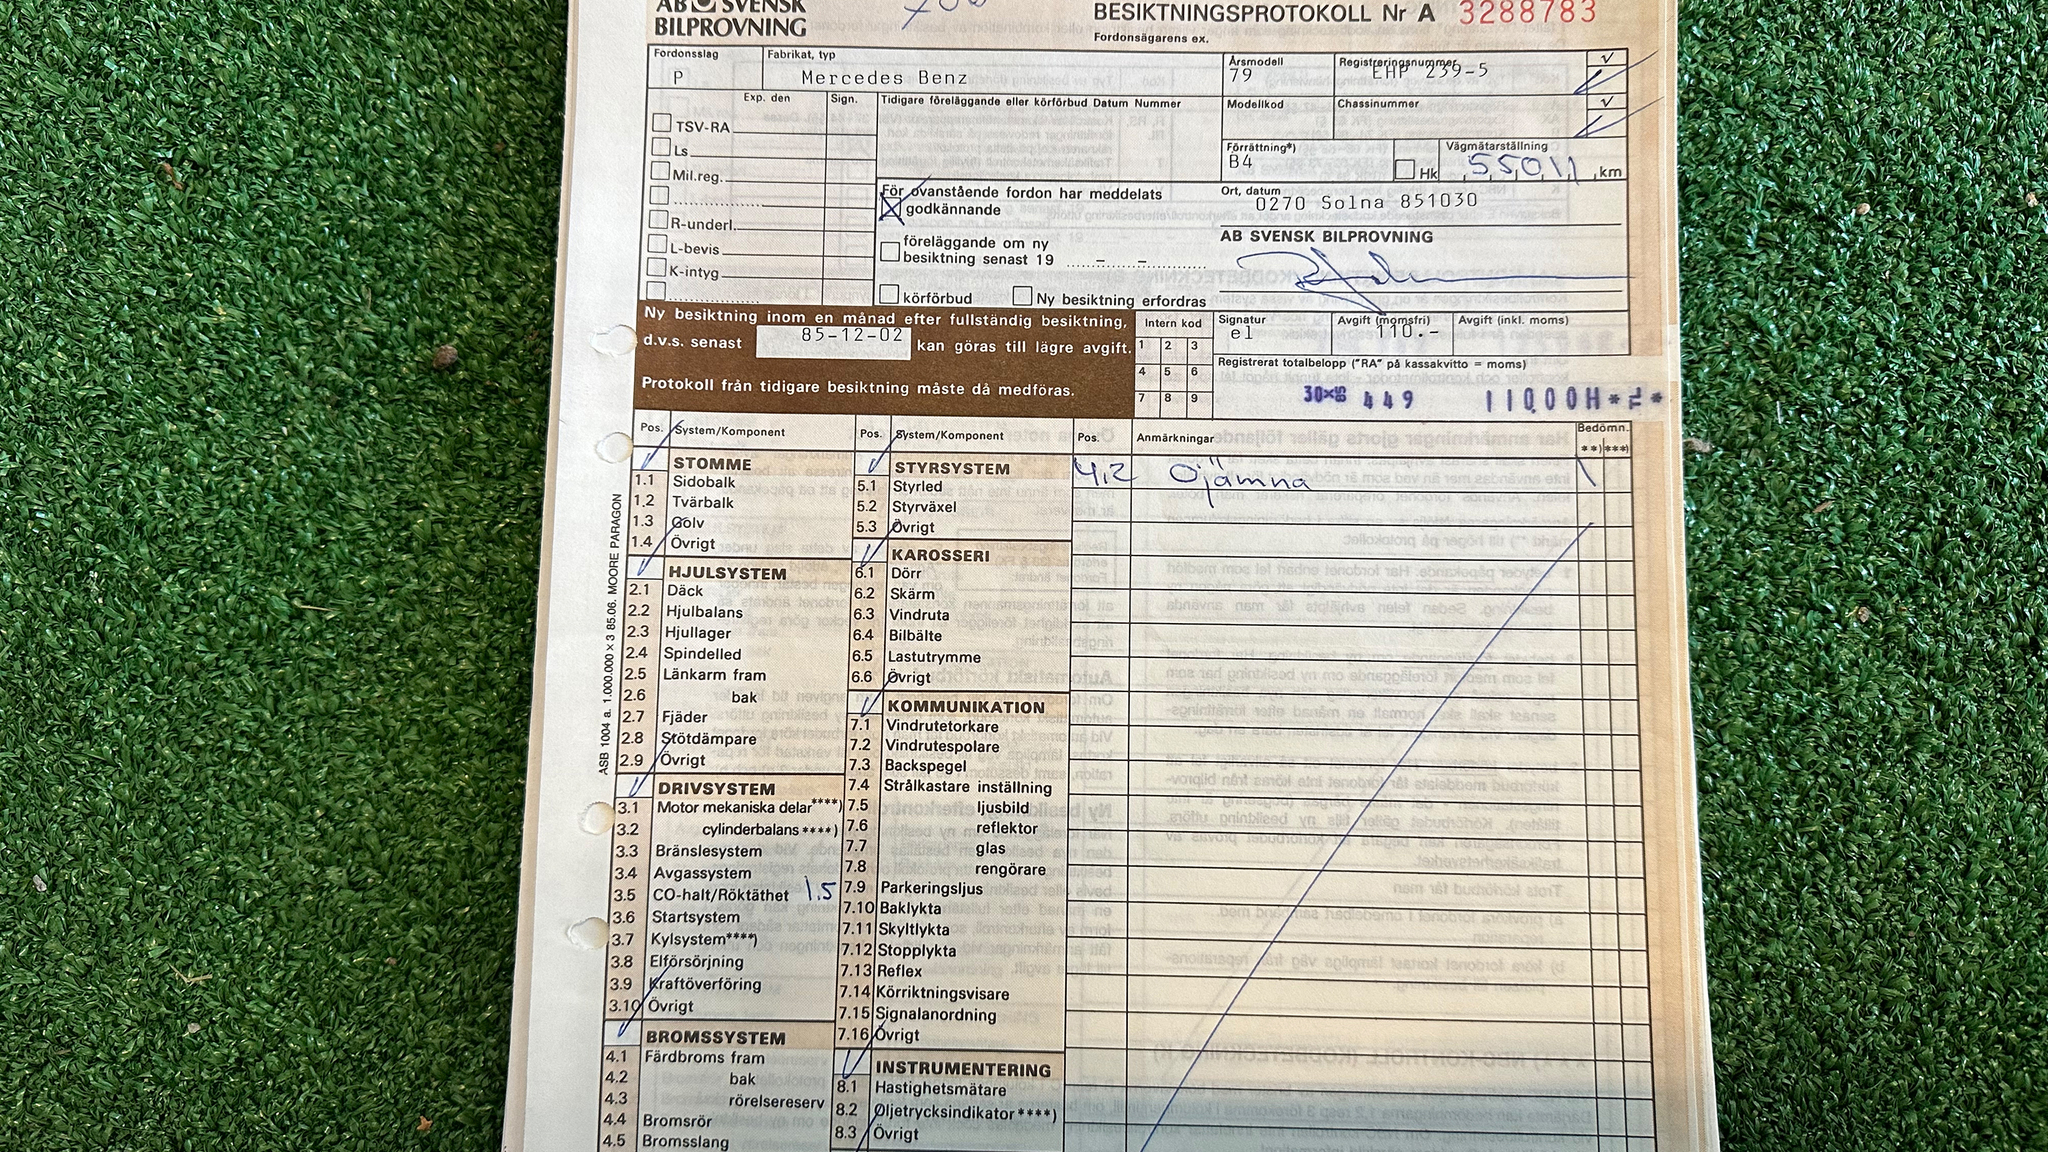 AB SVENSK
BILPROVNING
BESIKTNINGSPROTOKOLL Nr A 3288783
Fordonsägarens ex.
Fordonsslag
P
Fabrikat, typ
Mercedes Benz
Årsmodell
79
Registreringsnummer
EHP 239-5
Exp. den Sign.
TSV-RA
Ls
Mil.reg.
R-underl.
L-bevis
K-intyg
Tidigare föreläggande eller körförbud Datum Nummer
Modellkod
Chassinummer
Förrättning*)
B4
Hk
Vägmätarställning
55011 km
För ovanstående fordon har meddelats
godkännande
föreläggande om ny
besiktning senast 19 – –
körförbud
Ny besiktning erfordras
Ort, datum
0270 Solna 851030
AB SVENSK BILPROVNING
Ny besiktning inom en månad efter fullständig besiktning,
d.v.s. senast 85-12-02 kan göras till lägre avgift.
Protokoll från tidigare besiktning måste då medföras.
Intern kod
1 2 3
4 5 6
7 8 9
Signatur
el
Avgift (momsfri)
110.-
Avgift (inkl. moms)
Registrerat totalbelopp ("RA" på kassakvitto = moms)
449 110.00H*
Pos. System/Komponent
STOMME
1.1 Sidobalk
1.2 Tvärbalk
1.3 Golv
1.4 Övrigt
HJULSYSTEM
2.1 Däck
2.2 Hjulbalans
2.3 Hjullager
2.4 Spindelled
2.5 Länkarm fram
2.6 bak
2.7 Fjäder
2.8 Stötdämpare
2.9 Övrigt
DRIVSYSTEM
3.1 Motor mekaniska delar****)
3.2 cylinderbalans****)
3.3 Bränslesystem
3.4 Avgassystem
3.5 CO-halt/Röktäthet 1.5
3.6 Startsystem
3.7 Kylsystem****)
3.8 Elförsörjning
3.9 Kraftöverföring
3.10 Övrigt
BROMSSYSTEM
4.1 Färdbroms fram
4.2 bak
4.3 rörelsereserv
4.4 Bromsrör
4.5 Bromsslang
Pos. System/Komponent
STYRSYSTEM
5.1 Styrled
5.2 Styrväxel
5.3 Övrigt
KAROSSERI
6.1 Dörr
6.2 Skärm
6.3 Vindruta
6.4 Bilbälte
6.5 Lastutrymme
6.6 Övrigt
KOMMUNIKATION
7.1 Vindrutetorkare
7.2 Vindrutespolare
7.3 Backspegel
7.4 Strålkastare inställning
7.5 ljusbild
7.6 reflektor
7.7 glas
7.8 rengörare
7.9 Parkeringsljus
7.10 Baklykta
7.11 Skyltlykta
7.12 Stopplykta
7.13 Reflex
7.14 Körriktningsvisare
7.15 Signalanordning
7.16 Övrigt
INSTRUMENTERING
8.1 Hastighetsmätare
8.2 Oljetrycksindikator****)
8.3 Övrigt
Pos. Anmärkningar Bedömn.
**) ***)
4.2 Ojämna
ASB 1004 a. 1.000.000 x 3 85.06. MOORE PARAGON